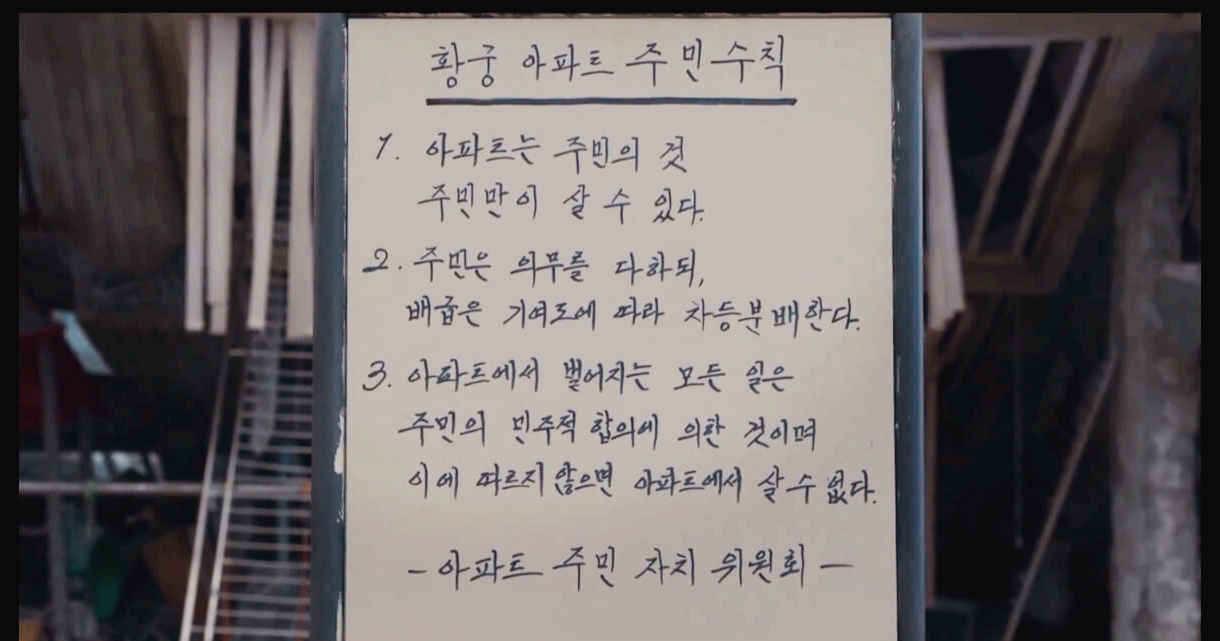 황궁 아파트 주민수칙
1. 아파트는 주민의 것
주민만이 살 수 있다.
2. 주민은 의무를 다하되,
배급은 기여도에 따라 차등분배한다.
3. 아파트에서 벌어지는 모든 일은
주민의 민주적 합의에 의한 것이며
이에 따르지 않으면 아파트에서 살 수 없다.
- 아파트 주민 자치 위원회 -